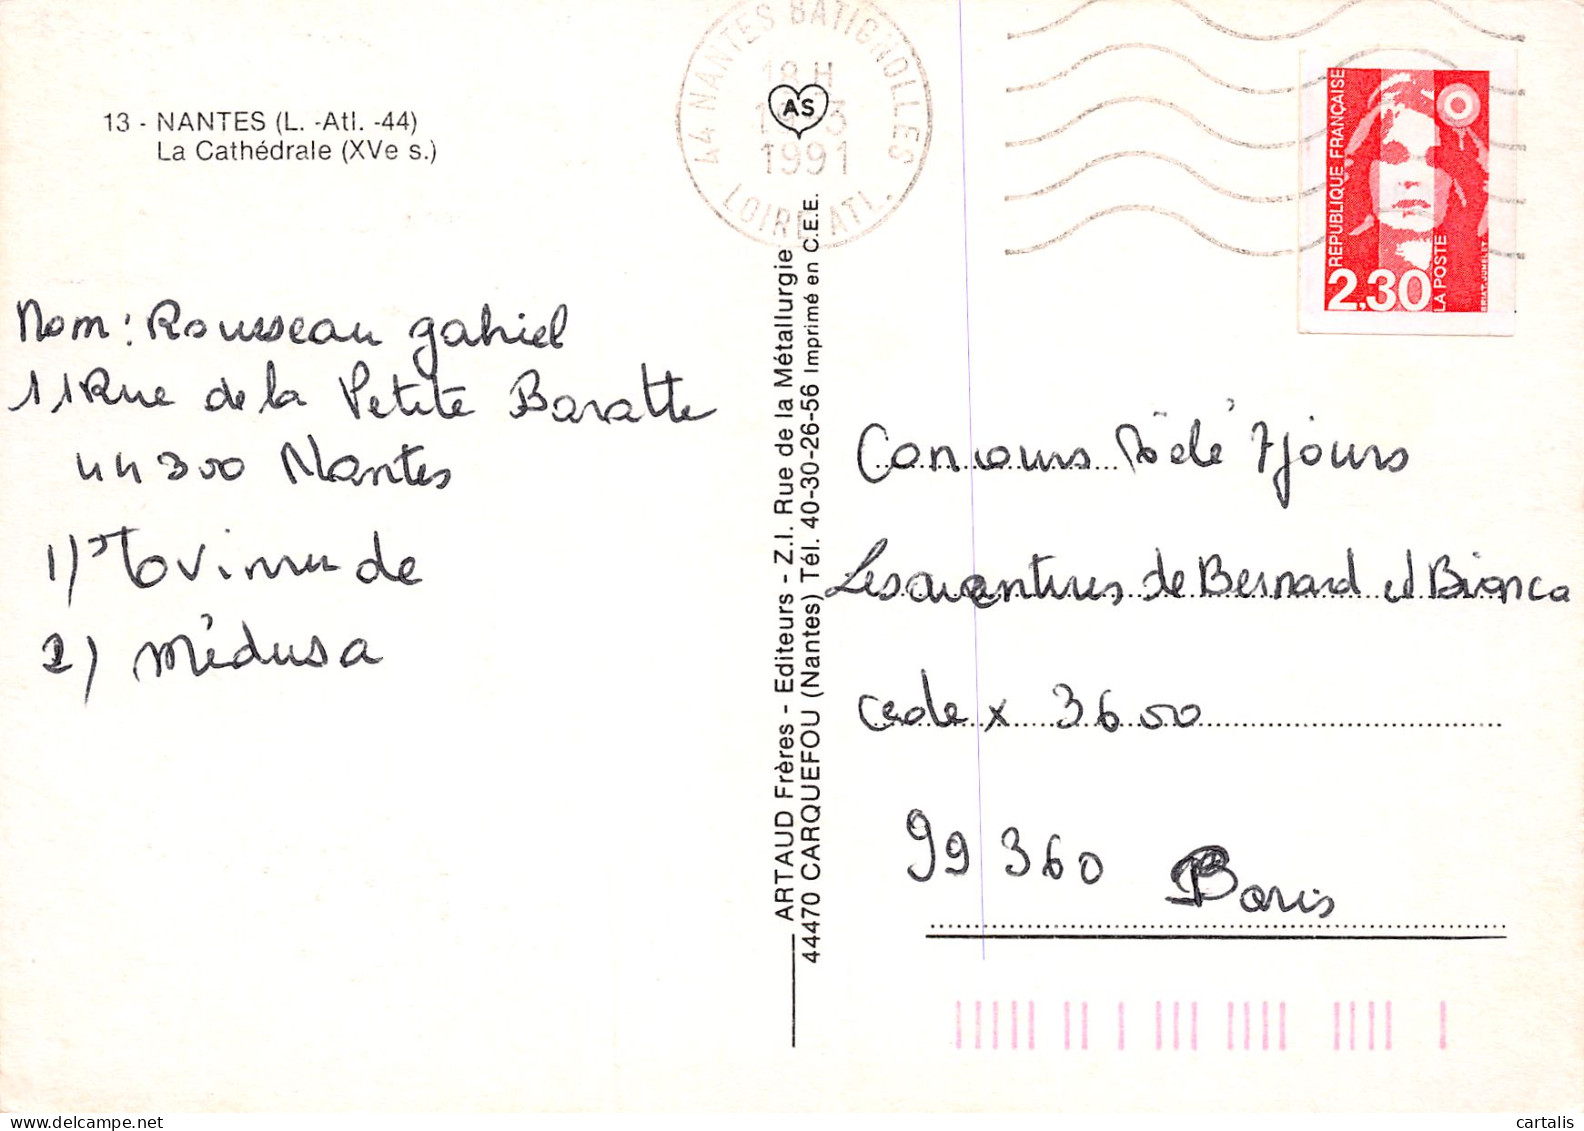 13 - NANTES (L. -Atl. -44)
La Cathédrale (XVe s.)
Nom: Rousseau gabriel
11 Rue de la Petite Baratte
44300 Nantes
1)
2) Médusa
44 NANTES BATIGNOLLES
18 H
1991
LOIRE ATL.
AS
ARTAUD Frères - Editeurs - Z.I. Rue de la Métallurgie
44470 CARQUEFOU (Nantes) Tél. 40-30-26-56 Imprimé en C.E.E.
REPUBLIQUE FRANÇAISE
2,30
LA POSTE
BRIAT-JUMELET
Concours Télé 7 jours
Les aventures de Bernard et Bianca
cedex 3600
99360 Paris
cartalis